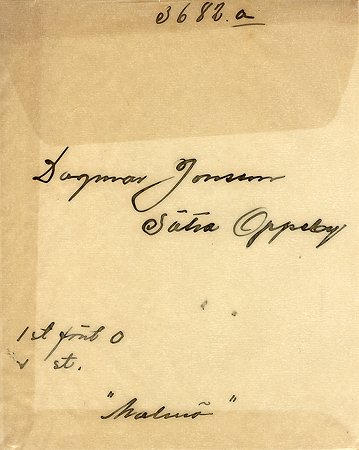 3682.a
Dagmar Jonsson
Sätra Oppeby
1 st fönt 0
v st.
"Malmö"